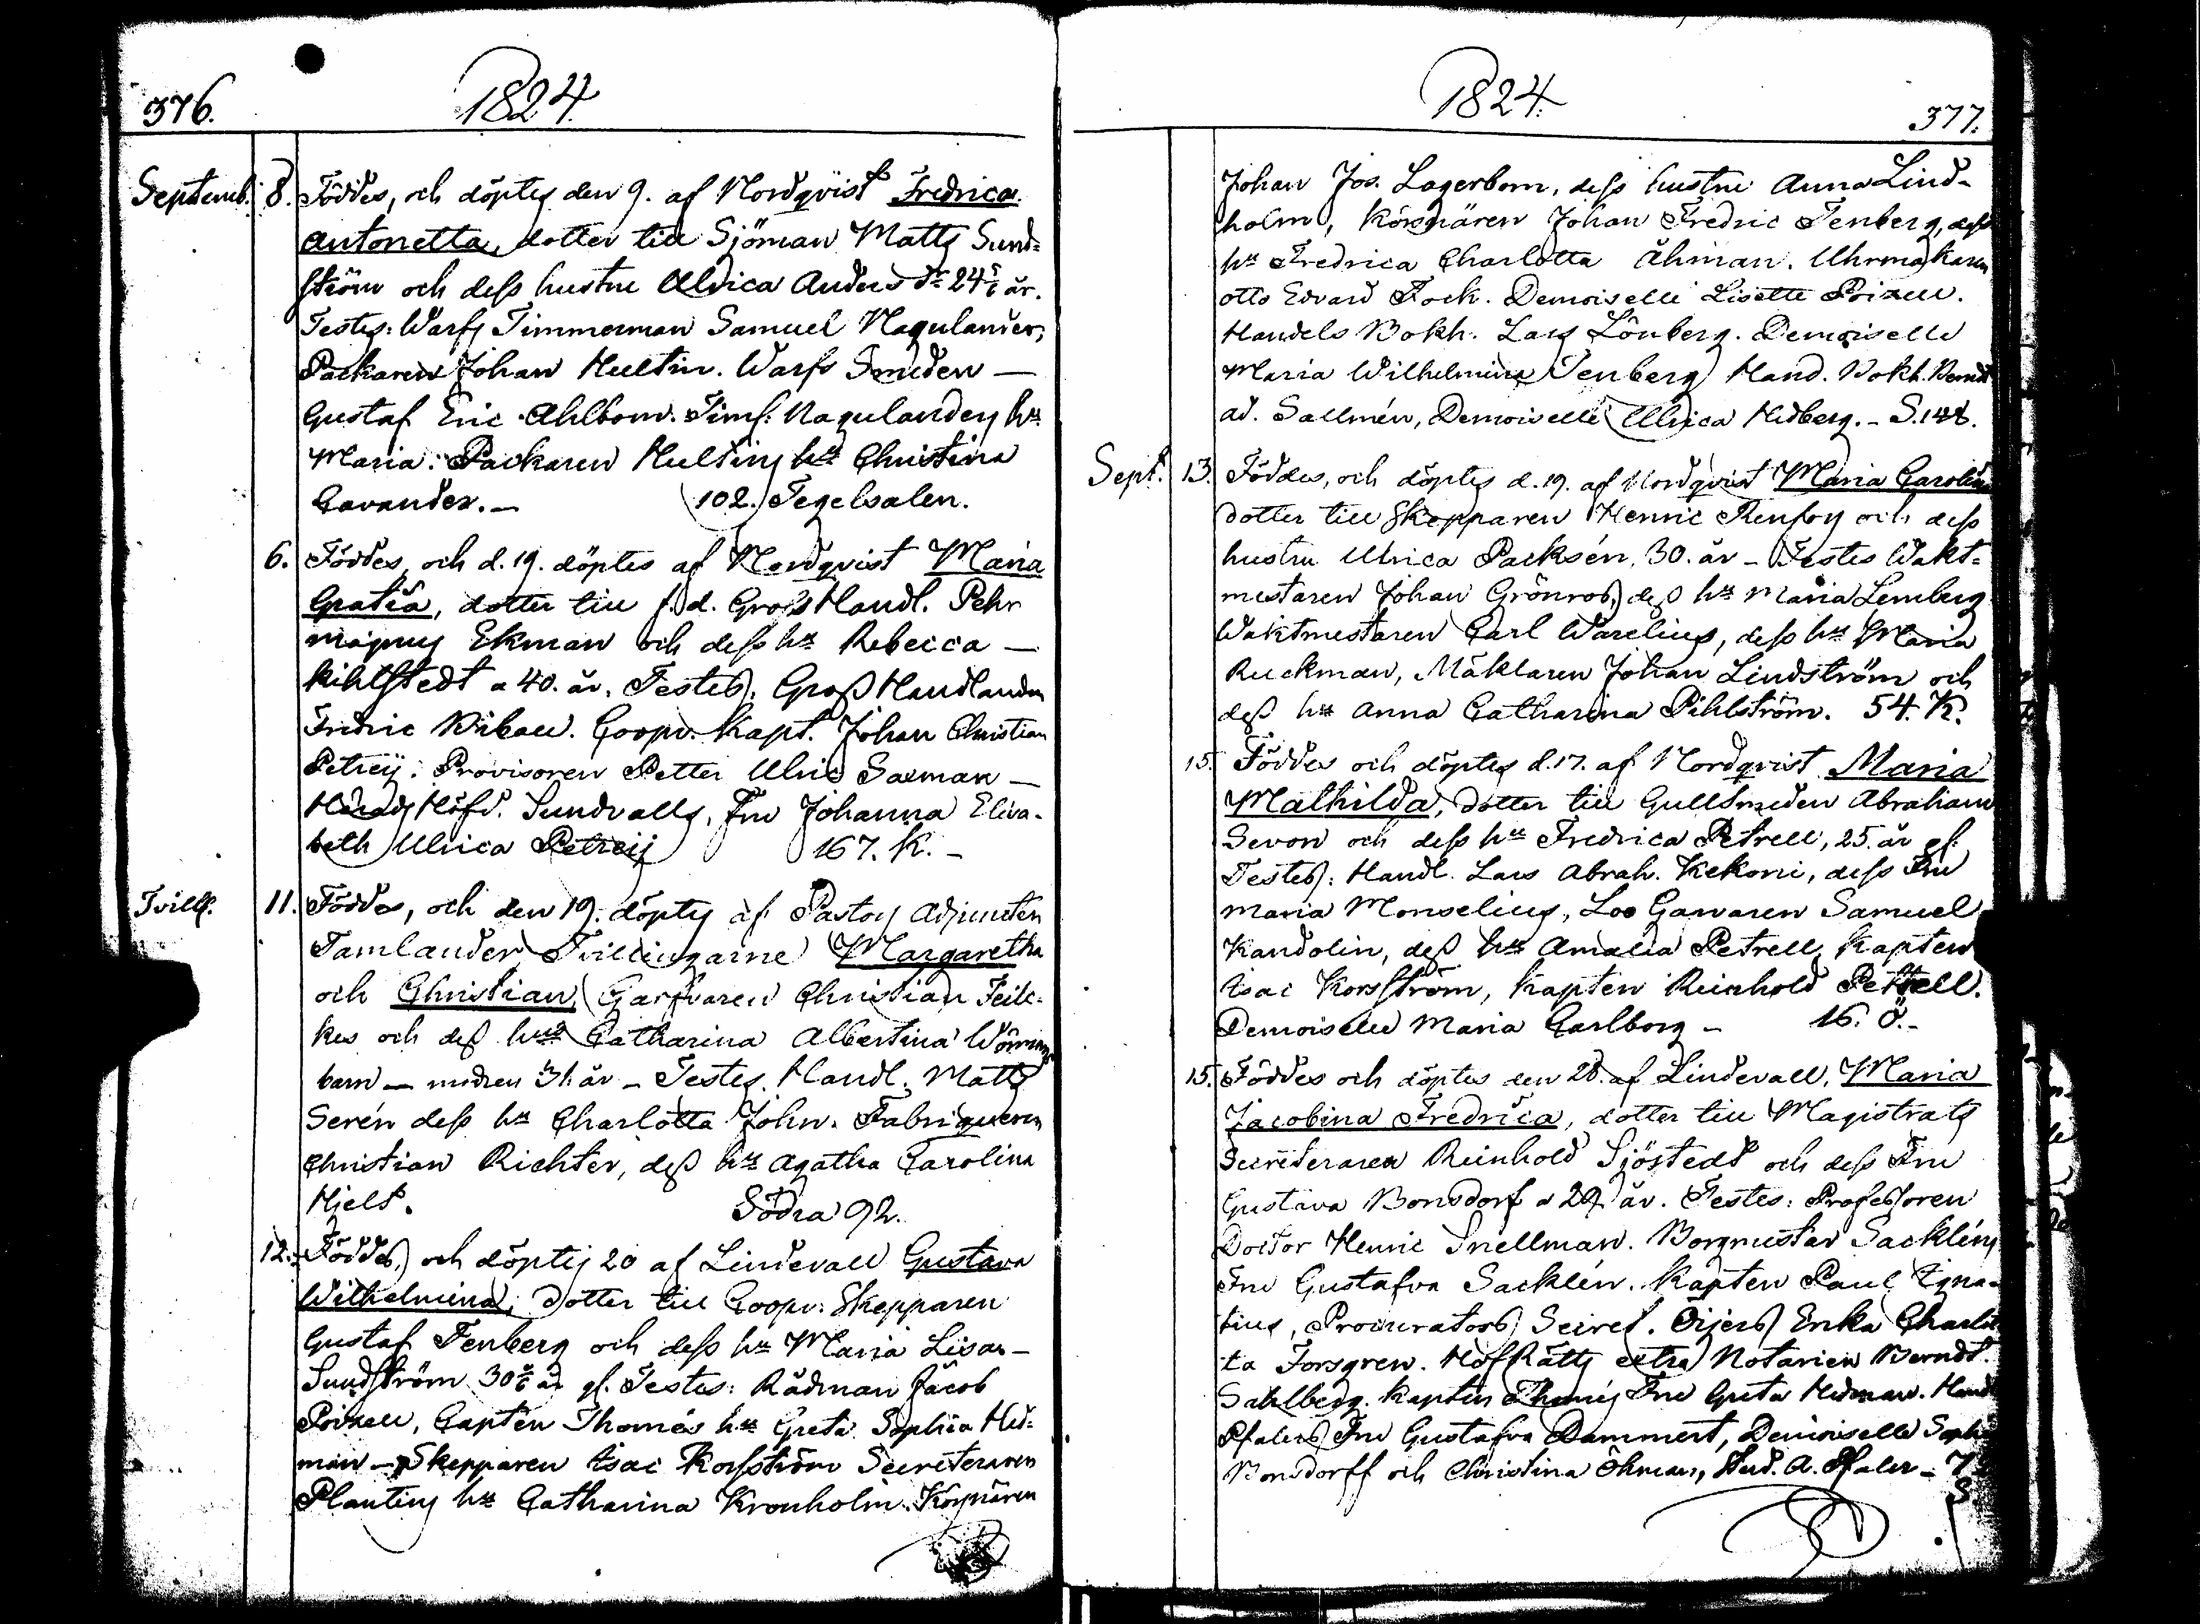 376.
1824.
Septemb. 8. Föddes, och döptes den 9. af Nordqvist Fredrica
Antonetta, dotter till Sjöman Matts Sund=
ström och dess hustru Ulrica Anders dr 24 5/6 år.
Testes: Warfs Timmerman Samuel Nagulander,
Packaren Johan Hultin. Warfs Smeden —
Gustaf Eric Ahlbom. Timf: Nagulanders hu
Maria. Packaren Hultins hu Christina
Cavander. — 102. Tegelsalen.
6. Föddes, och d. 19. döptes af Nordqvist Maria
Gratia, dotter till f.d. Gross Handl. Pehr
Magnus Ekman och dess hu Rebecca —
Kihlstedt a 40. år. Testes. Gross Handlanden
Fredric Coopv. Kapt. Johan Christian
Petreij. Provisoren Petter Ulric Saxman —
Härads Höfd. Sundvalls, Fru Johanna Elisa-
beth Ulrica Petreij 167. K. —
Tvill. 11. Föddes, och den 19. döptes af Pastors Adjuncten
Tamlander Tvillingarne Margaretha
och Christian, Garfvaren Christian Feile-
kes och dess hus Catharina Albertina
barn — modren 31 år — Testes. Handl. Matts
Serén dess hu Charlotta John. Fabriqueren
Christian Richter, dess hu Agatha Carolina
Hjelt. Södra 92.
12. Föddes, och döptes 20 af Lindevall Gustava
Wilhelmina, dotter till Coopv: Skepparen
Gustaf Tenberg och dess hu Maria Lisa —
Sundström 30 år gl. Testes: Rådman Jacob
Prixell, Capten Thomés hu Greta Sophia Hed-
man — Skepparen Isac Korsström Secreteraren
Planting hu Catharina Kronholm. Körsnären
1824.
377.
Johan Jos. Lagerbom, dess hustru Anna Lind-
holm, Körsnären Johan Fredric Tenberg, dess
hu Fredrica Charlotta Åhman. Uhrmakaren
Otto Edvard Fock. Demoiselle Lisette Prixell.
Handels Bokh. Lars Lönberg. Demoiselle
Maria Wilhelmina Tenberg Hand. Bokh. Bernd
Ad. Sallmén, Demoiselle Ulrica Hidberg. — S. 148.
Sept. 13. Föddes, och döptes d. 19. af Nordqvist Maria Carolina
dotter till Skepparen Henric Renfors och dess
hustru Ulrica Packsén. 30. år — Testes Wakt=
mestaren Johan Grönros, dess hu Maria Lemberg
Waktmestaren Carl Warelius, dess hu Maria
Ruckman, Mäklaren Johan Lindström och
dess hu Anna Catharina Pihlström. 54. K.
15. Föddes och döptes d. 17. af Nordqvist Maria
Mathilda, dotter till Gullsmeden Abraham
Sevon och dess hu Fredrica Petrell, 25. år gl.
Testes: Handl. Lars Abrah. Kekoni, dess Fru
Maria Monselius, Loo Garvaren Samuel
Kandolin, dess hu Amalia Petrell, Kapten
Isac Korsström, Kapten Reinhold Petrell.
Demoiselle Maria Carlborg — 16. Ö. —
15. Föddes och döptes den 28. af Lindevall, Maria
Jacobina Fredrica, dotter till Magistrats
Secreteraren Reinhold Sjöstedt och dess Fru
Gustava Bonsdorf a 29 år. Testes: Professoren
Doctor Henric Snellman. Borgmestar Sackléns
Fru Gustafva Sacklén. Kapten Paul Igna-
tius, Procurators Secret. Öijers Erika Charlot
ta Forsgren. HofRätts extra Notarien Berndt.
Sahlberg. Kapten Thomés Fru Greta Hedman. Handl
Pfalers Fru Gustafva Dammert, Demoiselle Soph
Bonsdorff och Christina Öhman, Stud. A. Pfaler — 7
S.